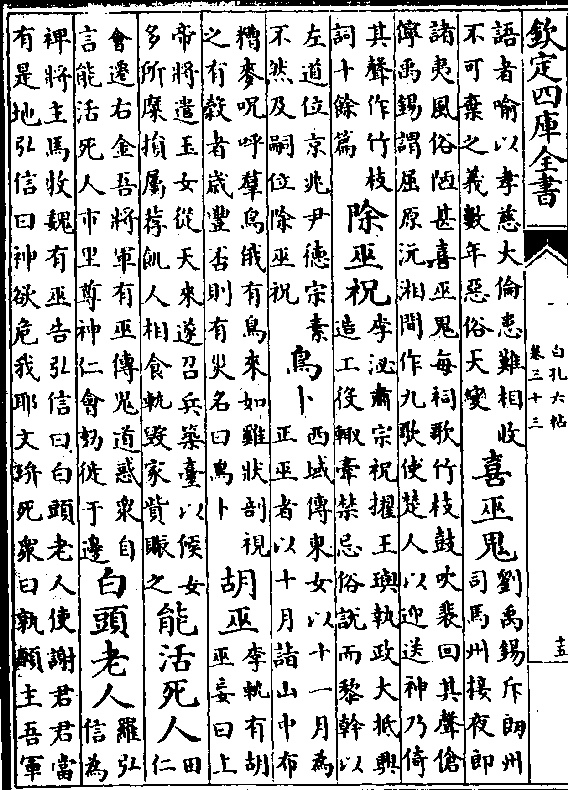 欽定四庫全書
白孔六帖
卷三十三
十五
語者喻以孝慈大倫患難相收
不可棄之義數年惡俗大變
喜巫鬼
劉禹錫斥朗州
司馬州接夜郎
諸夷風俗陋甚喜巫鬼每祠歌竹枝鼓吹裴回其聲傖
儜禹錫謂屈原沅湘間作九歌使楚人以迎送神乃倚
其聲作竹枝
詞十餘篇
除巫祝
李泌肅宗祝擢王璵執政大抵興
造工役輙牽禁忌俗說而黎幹以
左道位京兆尹德宗素
不然及嗣位除巫祝
鳥卜
西域傳東女以十一月為
正巫者以十月詣山中布
糟麥呪呼羣鳥俄有鳥來如雞狀剖視
之有穀者歲豐否則有災名曰鳥卜
胡巫
李軌有胡
巫妄曰上
帝將遣玉女從天來遂召兵築臺以候女
多所糜損屬荐飢人相食軌毀家貲賑之
能活死人
田
仁
會遷右金吾將軍有巫傳鬼道惑衆自
言能活死人市里尊神仁會劾徙于邊
白頭老人
羅弘
信為
裨將主馬牧魏有巫告弘信曰白頭老人使謝君君當
有是地弘信曰神欲危我耶文㺹死衆曰孰願主吾軍